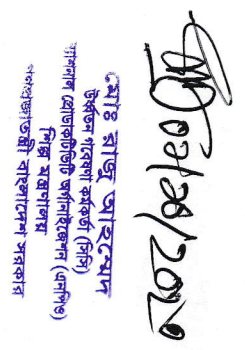 মোঃ রাজু আহম্মেদ
উর্ধ্বতন গবেষণা কর্মকর্তা (সিসি)
ন্যাশনাল প্রোডাকটিভিটি অর্গানাইজেশন (এনপিও)
শিল্প মন্ত্রণালয়
গণপ্রজাতন্ত্রী বাংলাদেশ সরকার